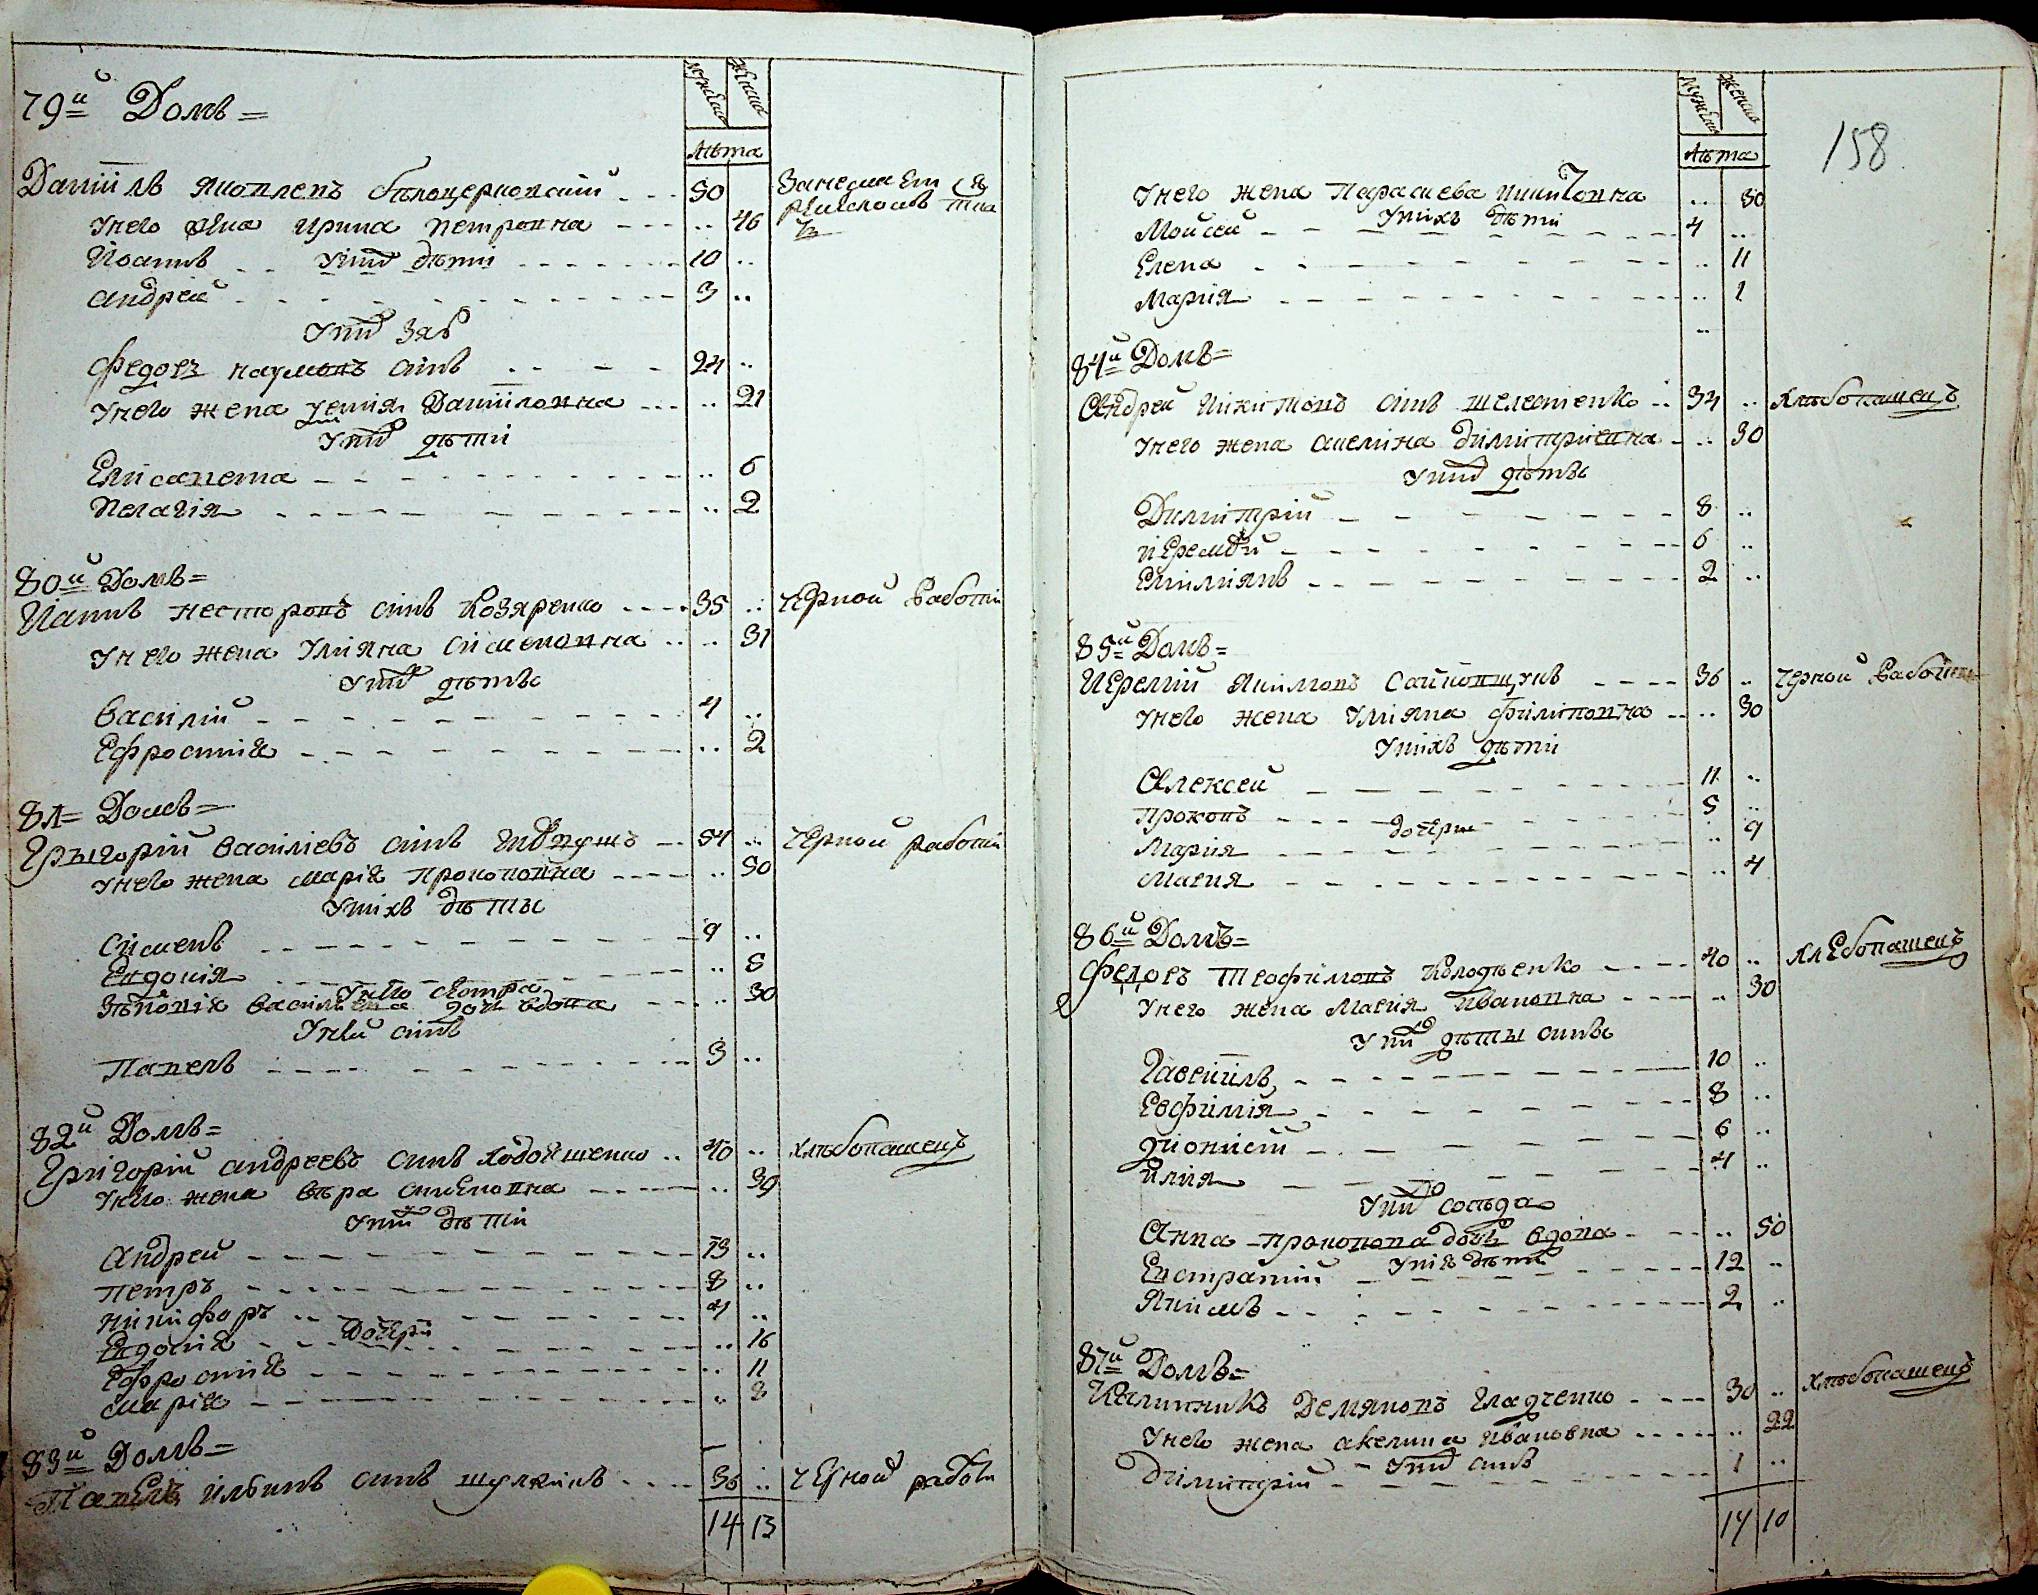 мужеска женска
лѣта
79й Домъ =
Даниилъ Яковлевъ бѣлоцерковскій 50
У него жена Ирина Петровна 46
У них дѣти
Иоаннъ 10
Андрей 3
У них зять
Федоръ Наумовъ синъ 24
У него жена Данииловна 21
У них дѣти
Елисавета 6
Пелагія 2
80й Домъ =
Иванъ Несторовъ синъ Козяренко 35 Черной работи
У него жена Улияна Сименовна 31
У них дѣтъ
Василій 4
Ефросинія 2
81 = Домъ =
Григорий Василіевъ синъ 54 Черной работи
У него жена Марія Прокоповна 50
У нихъ дѣты
Сименъ 9
Евдокія 5
У него сестра
Василіева дочь вдова 30
У неи синъ
Павелъ 3
82й Домъ =
Григорій Андреевъ синъ 40 Хлѣбопашецъ
У него жена Вѣра Сименовна 39
У них дѣти
Андрей 13
Петръ 8
Никифоръ 4
Дочери
Евдокія 16
Ефросинія 11
Марія 8
83й Домъ =
Павелъ Ильинъ синъ шулжинъ 36 Черной работи
14 13
158
мужеска женска
лѣта
У него жена Параскева Никитовна 30
У нихъ дѣти
Мойсей 4
Елена 11
Мария 1
84й Домъ =
Андрей Никитовъ синъ шелестенко 34 Хлѣбопашецъ
У него жена Акелина Димитриевна 30
У них дѣтъ
Димитрій 8
Иеремѣй 6
Емилиянъ 2
85й Домъ =
Иеремій Якимовъ 36 Черной работи
У него жена Улияна Филиповна 30
У нихъ дѣти
Алексей 11
Прокопъ 5
дочери
Мария 9
Мария 4
86й Домъ =
Федоръ Теофимовъ Колодѣенко 40 Хлебопашецъ
У него жена Мария Ивановна 30
У них дѣты синъ
Гавриилъ 10
Евфимія 8
Дионисій 6
Илия 4
У них соседа
Анна Прокопова дочь вдова 50
У ней дѣти
Евстратий 12
Якимъ 2
87й Домъ =
Калинникъ Демяновъ Гладченко 30 Хлѣбопашецъ
У него жена Акелина Ивановна 22
У них синъ
Димитрій 1
14 10